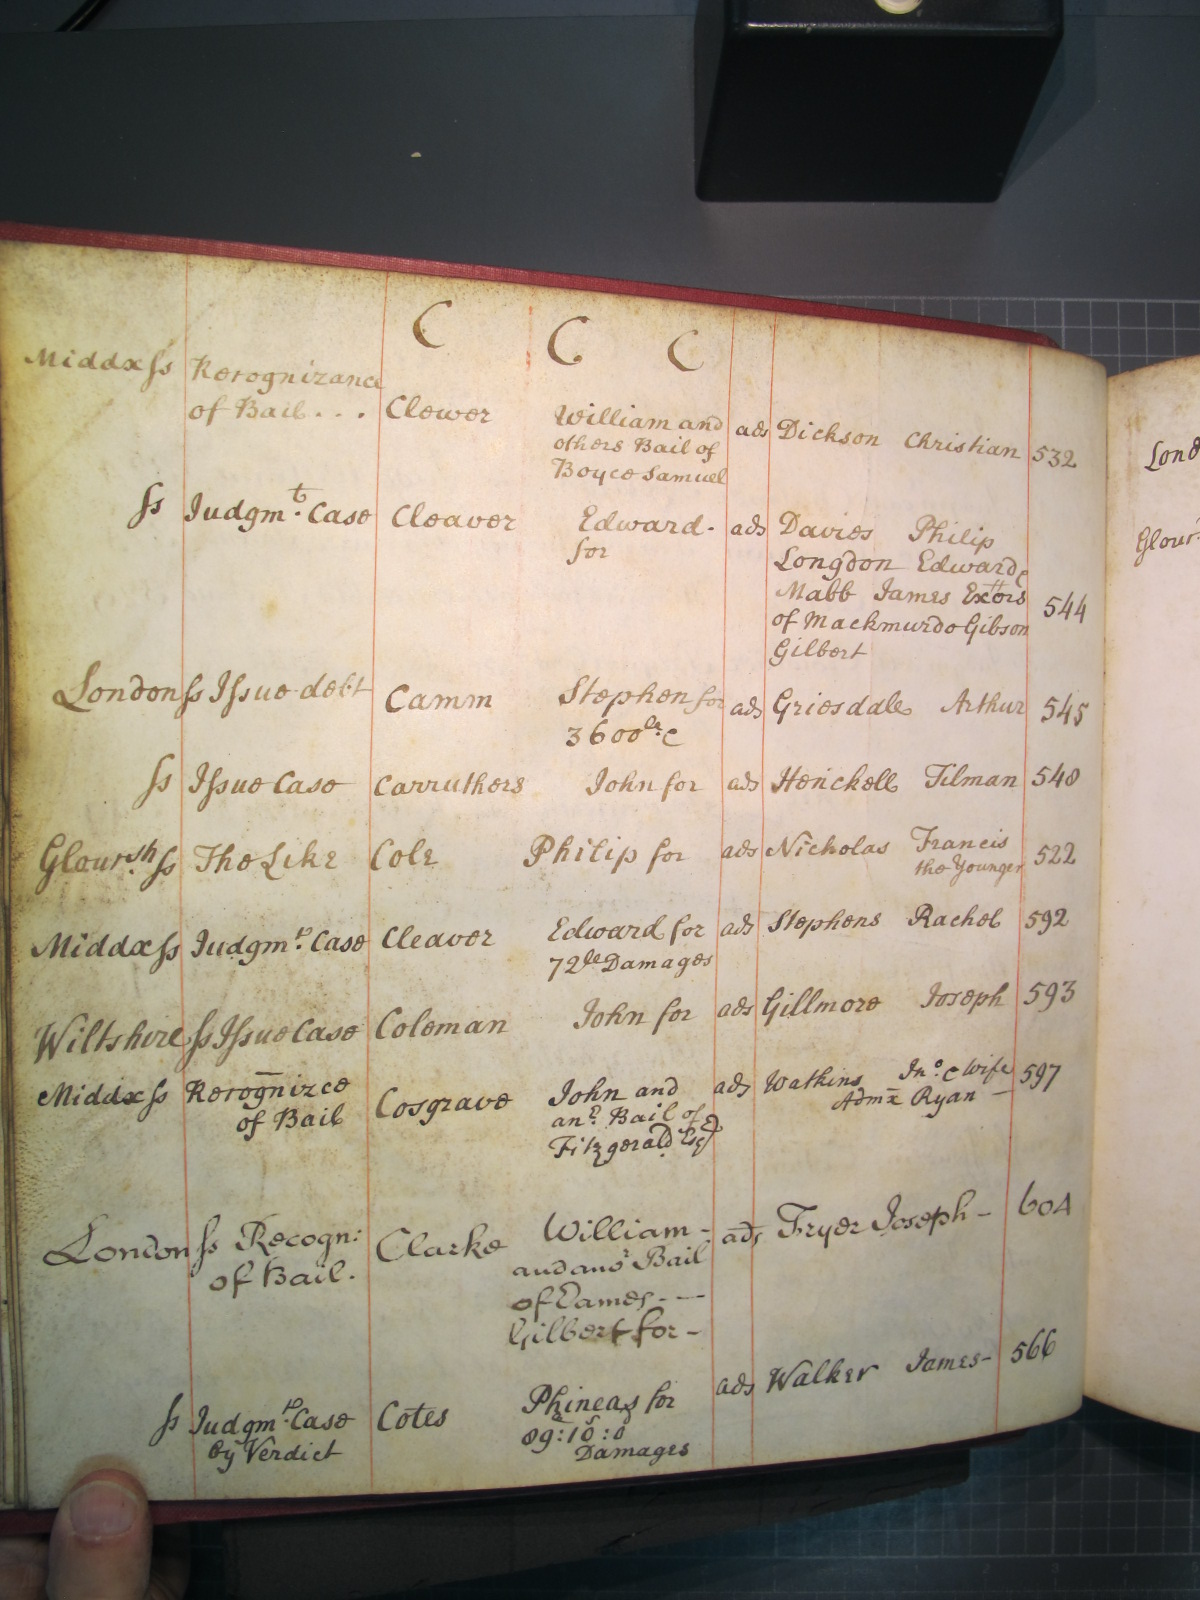 C C C
Middx ss Recognizance
of Bail . . . Clewer William and ads Dickson Christian 532
others Bail of
Boyce Samuel
ss Judgmt. Case Cleaver Edward. ads Davies Philip
for Longdon Edward &
Mabb James Exors 544
of Mackmurdo Gibson
Gilbert
London ss Issue debt Camm Stephen for ads Griesdale Arthur 545
3600 &c
ss Issue Case Carruthers John for ads Henckell Tilman 548
Glour.sh ss The Like Cole Philip for ads Nicholas Francis 522
the Younger
Middx ss Judgmt. Case Cleaver Edward for ads Stephens Rachel 592
72 Damages
Wiltshire ss Issue Case Coleman John for ads Gillmore Joseph 593
Middx ss Recognizce Cosgrave John and ads Watkins Jno. & Wife 597
of Bail anr. Bail of Admx Ryan –
Fitzgerald Esq
London ss Recogn: Clarke William – ads Fryer Joseph – 604
of Bail. and anor Bail
of Eames - —
Gilbert for –
ss Judgmt. Case Cotes Phineas for ads Walker James – 566
by Verdict 89:10:0
Damages
Lond
Glour.